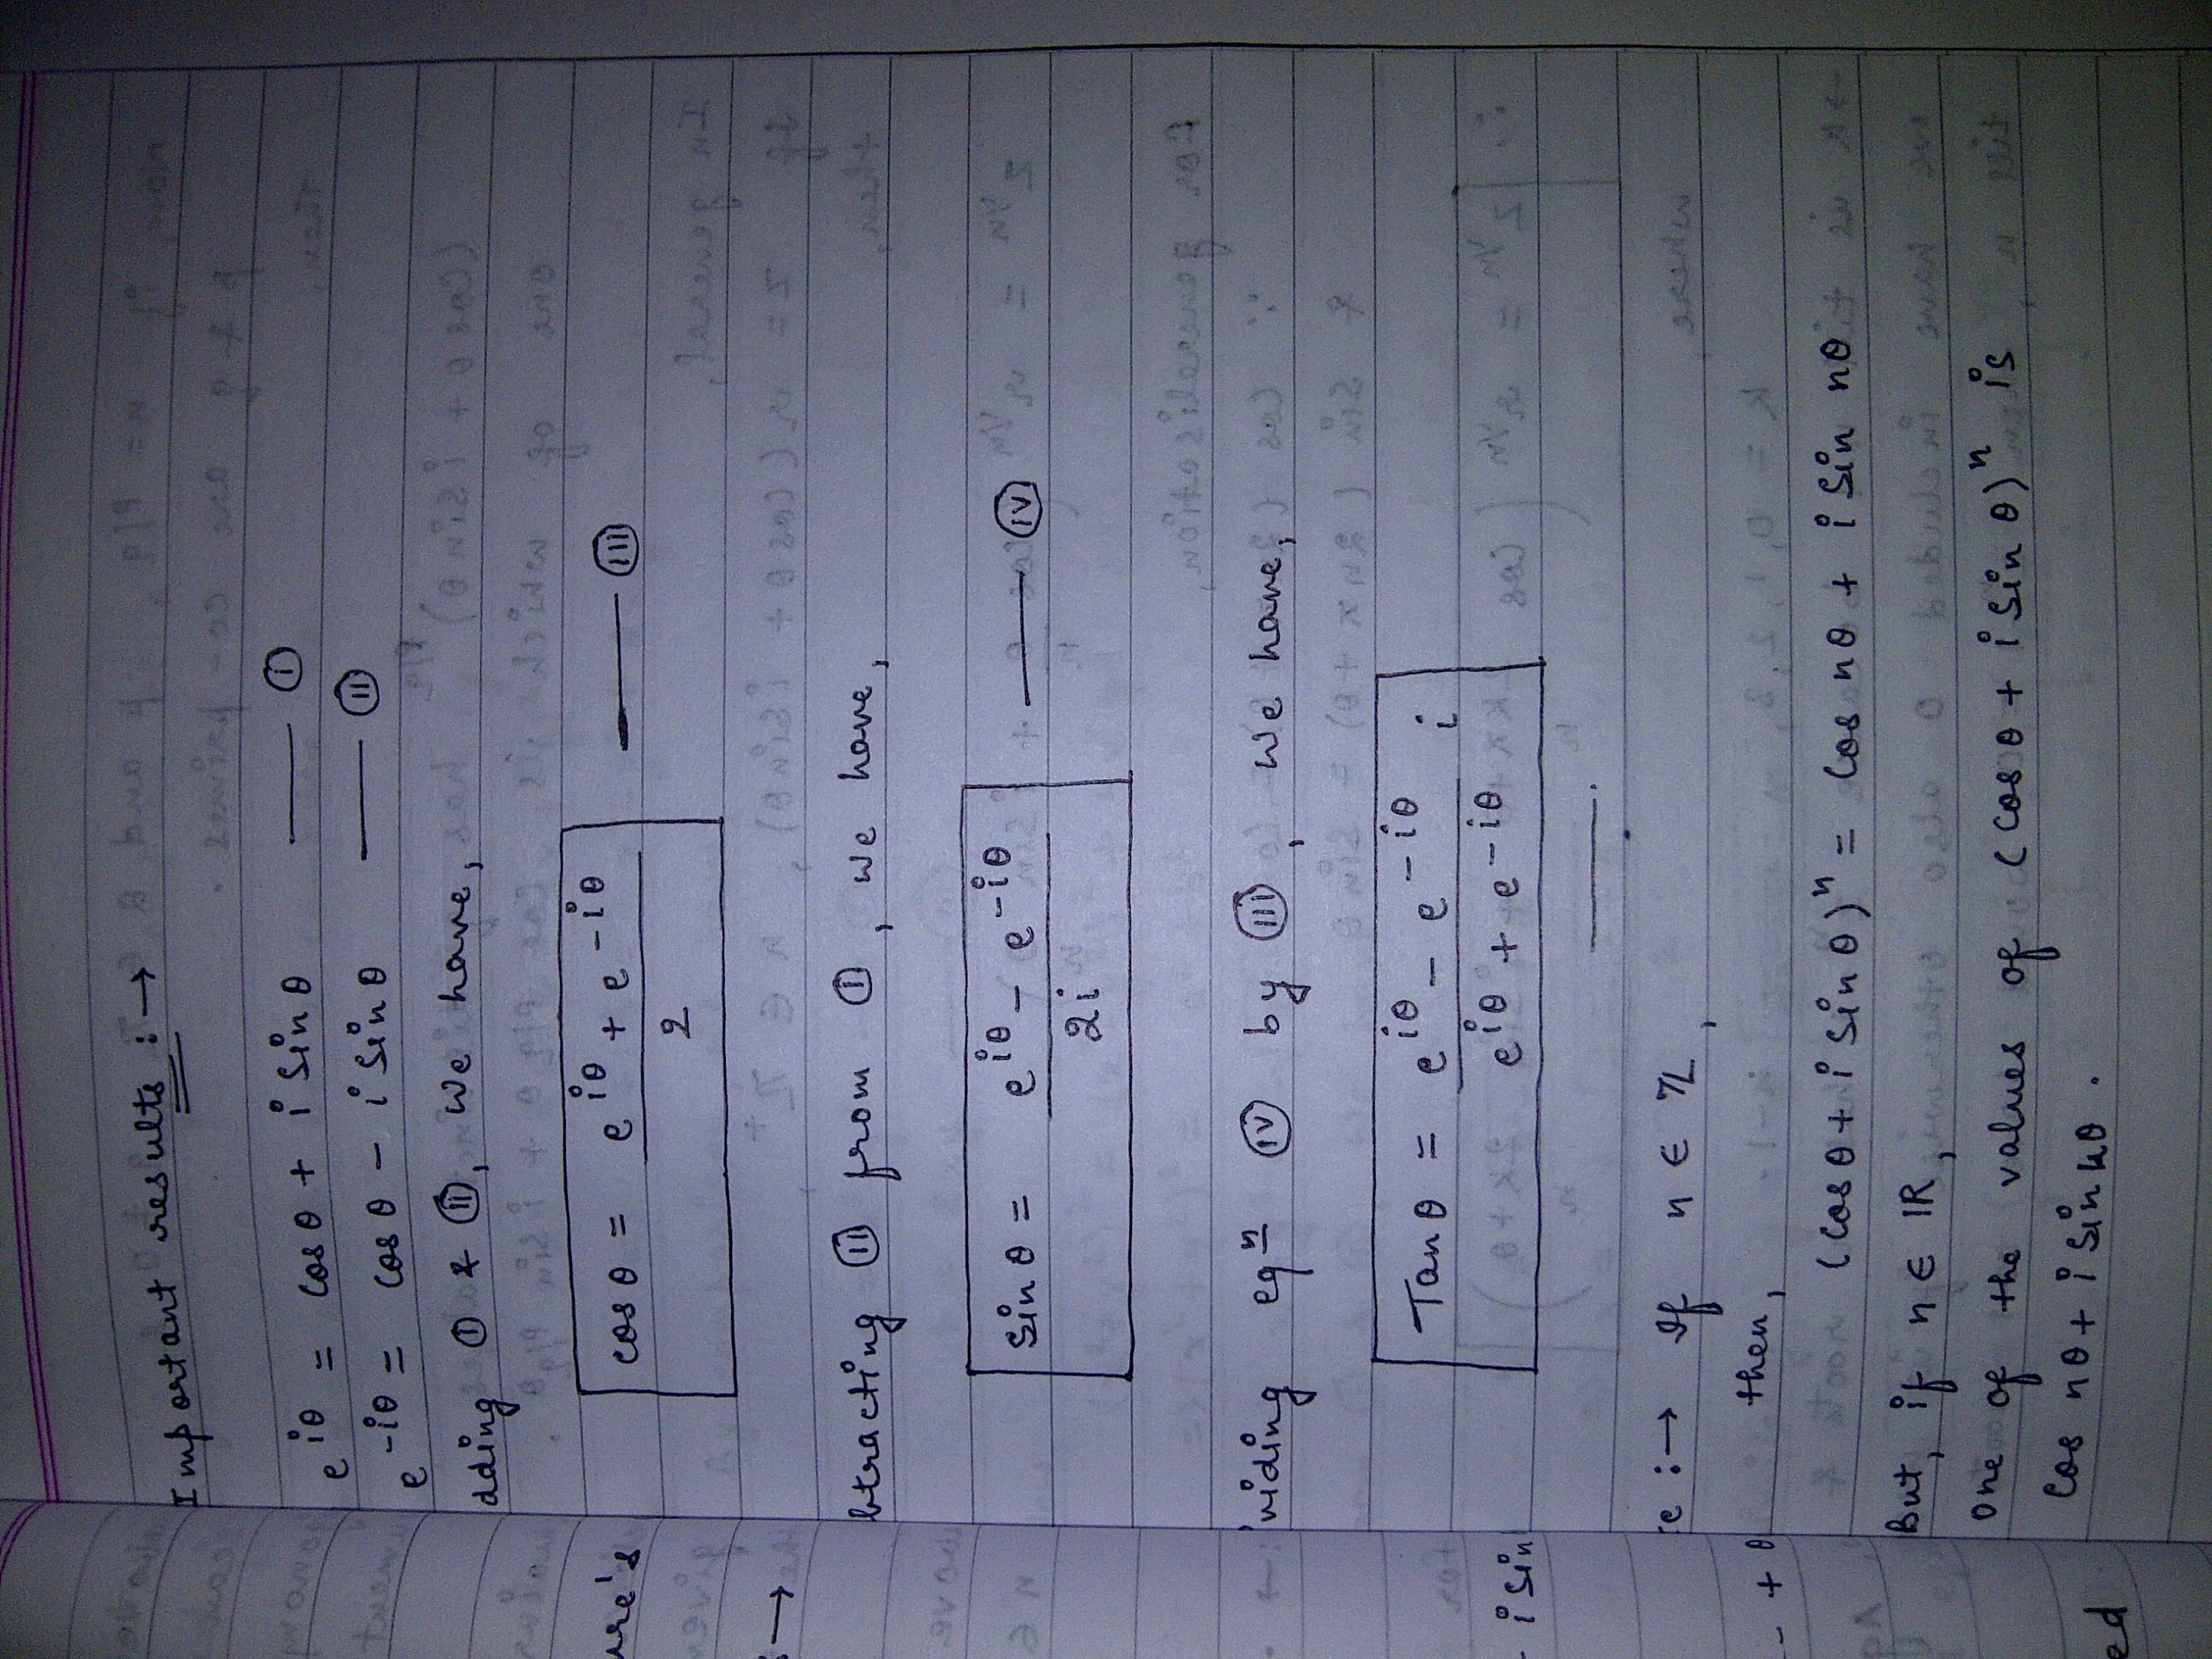 Important results :→
e^{iθ} = cosθ + i sinθ —— (I)
e^{-iθ} = cosθ - i sinθ —— (II)
dding (I) & (II), we have,
cosθ = (e^{iθ} + e^{-iθ}) / 2 —— (III)
btracting (II) from (I), we have,
sinθ = (e^{iθ} - e^{-iθ}) / 2i —— (IV)
viding eqⁿ (IV) by (III), we have,
Tanθ = (e^{iθ} - e^{-iθ}) / (e^{iθ} + e^{-iθ}) i
e :→ If n ∈ ℤ,
then,
(cosθ + i sinθ)ⁿ = cos nθ + i sin nθ
But, if n ∈ ℝ,
one of the values of (cosθ + i sinθ)ⁿ is
cos nθ + i sin nθ .
ure's
:→
i sin
- + θ
ed